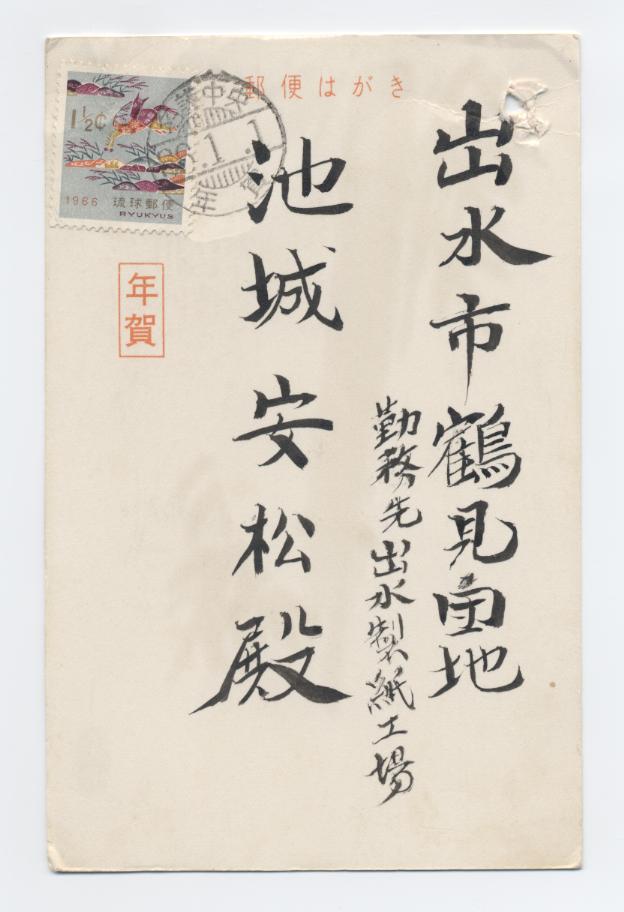 郵便はがき
1½¢
1966 琉球郵便
RYUKYUS
年賀
出水市鶴見団地
勤務先出水製紙工場
池城安松殿